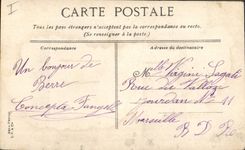 I
CARTE POSTALE
Tous les pays étrangers n'acceptent pas la correspondance au recto.
(Se renseigner à la poste.)
Correspondance
Adresse du destinataire
Un bonjour de
Berre
Concepta
Mlle
Rue
Jourdan No 11
Marseille
B D R